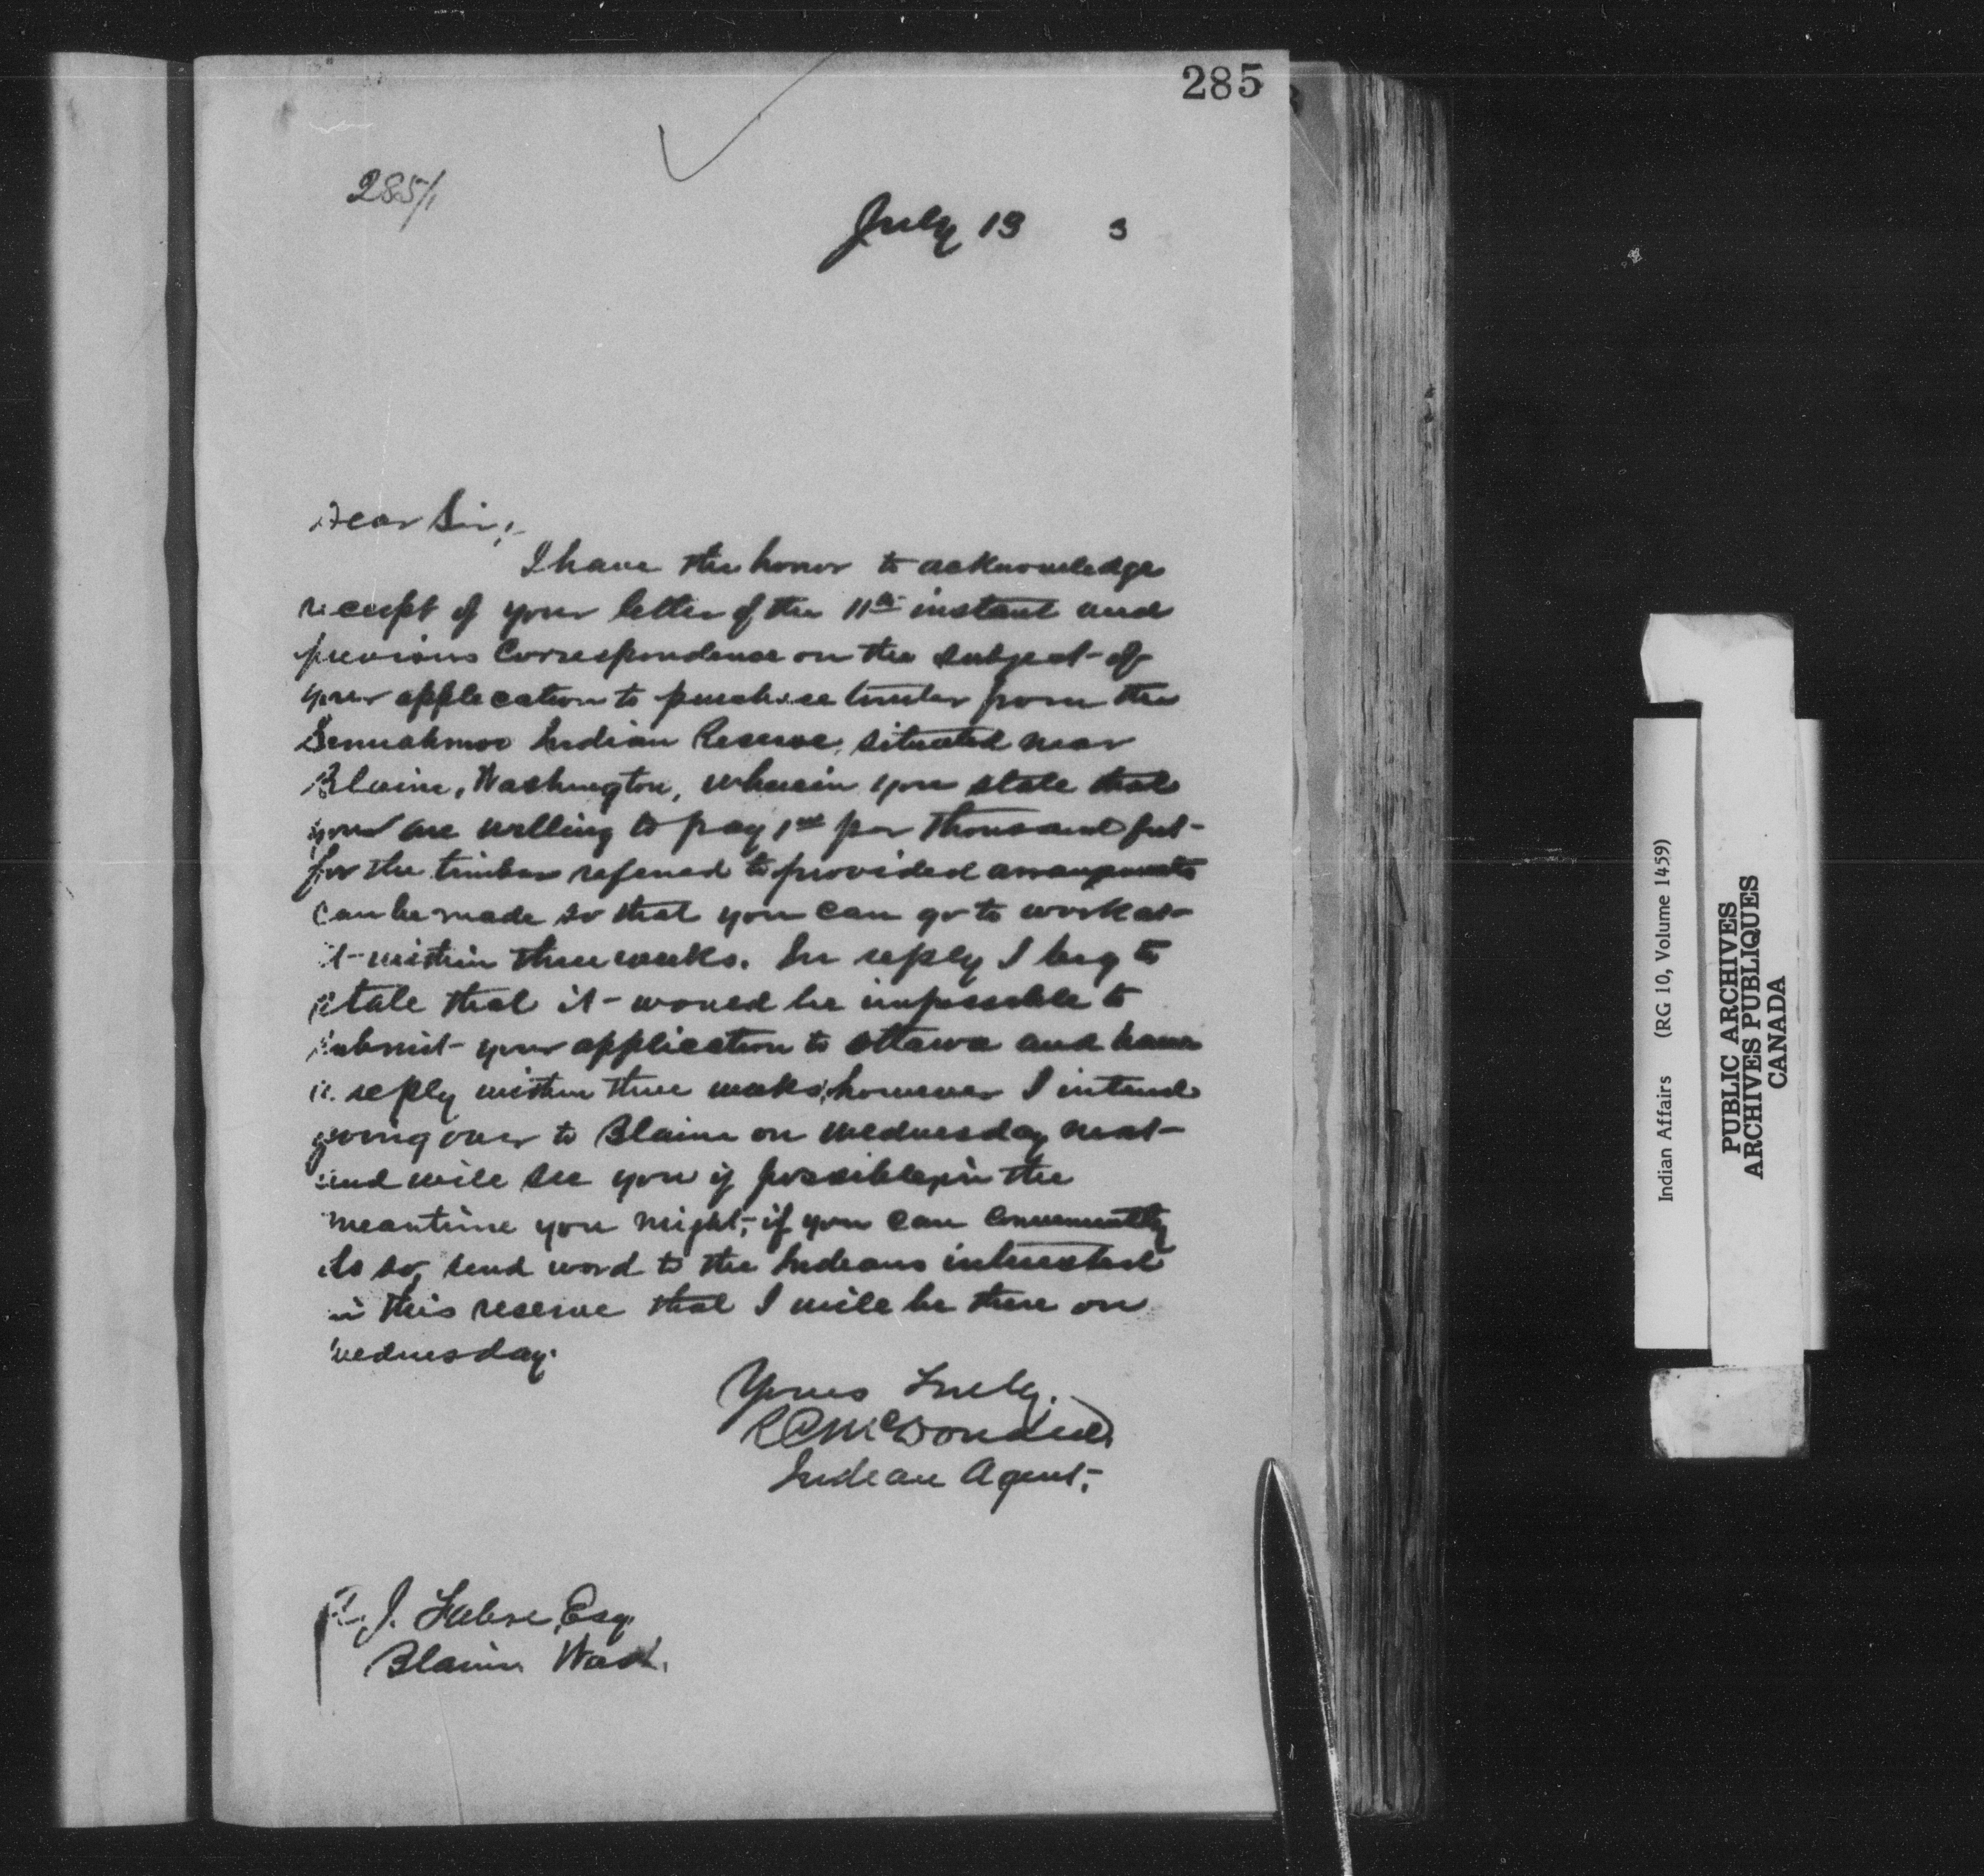 285
285/1
July 13 3
Dear Sir;-
I have the honor to acknowledge
receipt of your letter of the 11th instant and
previous Correspondence on the subject of
your application to purchase timber from the
Semiahmoo Indian Reserve, situated near
Blaine, Washington, wherein you state that
you are willing to pay per thousand feet
for the timber referred to provided arrangements
can be made so that you can go to work at
it within three weeks. In reply I beg to
state that it would be impossible to
submit your application to Ottawa and have
a reply within three weeks, however I intend
going over to Blaine on Wednesday next
and will see you if possible, in the
meantime you might, if you can conveniently
do so, send word to the Indians interested
in this reserve that I will be there on
Wednesday.
Yours Truly.
McDonald
Indian Agent.
J. Esq.
Blaine Wash.
Indian Affairs (RG 10, Volume 1459)
PUBLIC ARCHIVES
ARCHIVES PUBLIQUES
CANADA